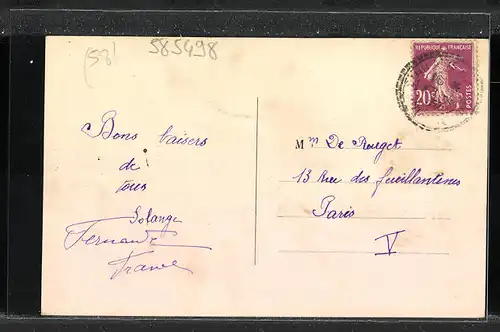 (58)
585498
REPUBLIQUE FRANÇAISE
20c
POSTES
Bons baisers
de
tous
Solange
Fernande
France
Mm De Rouget
13 Rue des feuillantines
Paris
V